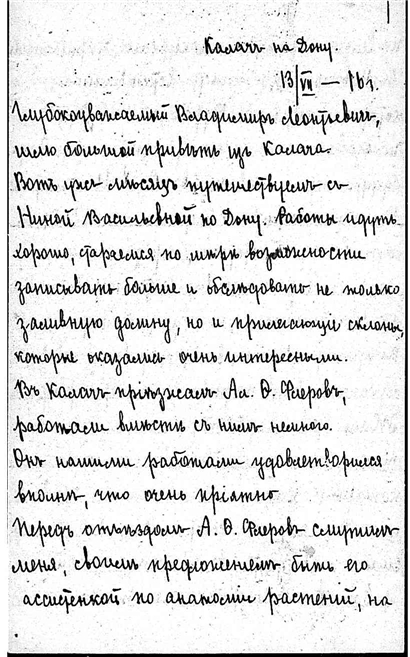 Калачъ на Дону.
13/VII — 16 г.
Глубокоуважаемый Владимиръ Леонтьевичъ,
шлю большой привѣтъ изъ Калача.
Вотъ уже мѣсяцъ путешествуемъ съ
Ниной Васильевной по Дону. Работы идутъ
хорошо, стараемся по мѣрѣ возможности
записывать больше и обслѣдовать не только
заливную долину, но и прилегающіе склоны,
которые оказались очень интересными.
Въ Калачъ пріѣзжалъ Ал. Ѳ. Флеровъ,
работали вмѣстѣ съ нимъ немного.
Онъ нашими работами удовлетворился
вполнѣ, что очень пріятно
Передъ отъѣздомъ А. Ѳ. Флеровъ смутилъ
меня, своимъ предложеніемъ быть его
ассистенткой по анатоміи растеній, на